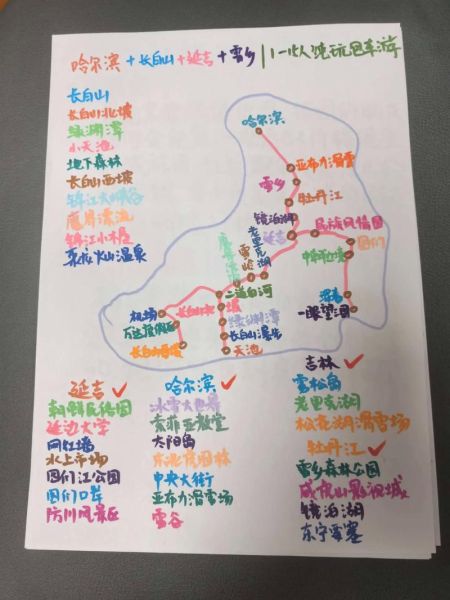 哈尔滨+长白山+延吉+雪乡|1一6人纯玩包车游
长白山
长白山北坡
绿渊潭
小天池
地下森林
长白山西坡
锦江大峡谷
魔界漂流
锦江木屋
聚龙火山温泉
哈尔滨
亚布力滑雪
雪乡
牡丹江
镜泊湖
民族风情园
延吉
图们
老里克湖
雪岭
魔界漂流
中朝边境
珲春
一眼望三国
二道白河
机场
万达度假区
长白山西坡
长白山北坡
绿渊潭
长白山瀑布
天池
延吉✓
朝鲜民俗园
延边大学
网红墙
水上市场
图们江公园
图们口岸
防川风景区
哈尔滨✓
冰雪大世界
索菲亚教堂
太阳岛
东北虎园林
中央大街
亚布力滑雪场
雪谷
吉林✓
雾松岛
老里克湖
松花湖滑雪场
牡丹江✓
雪乡森林公园
威虎山影视城
镜泊湖
东宁要塞